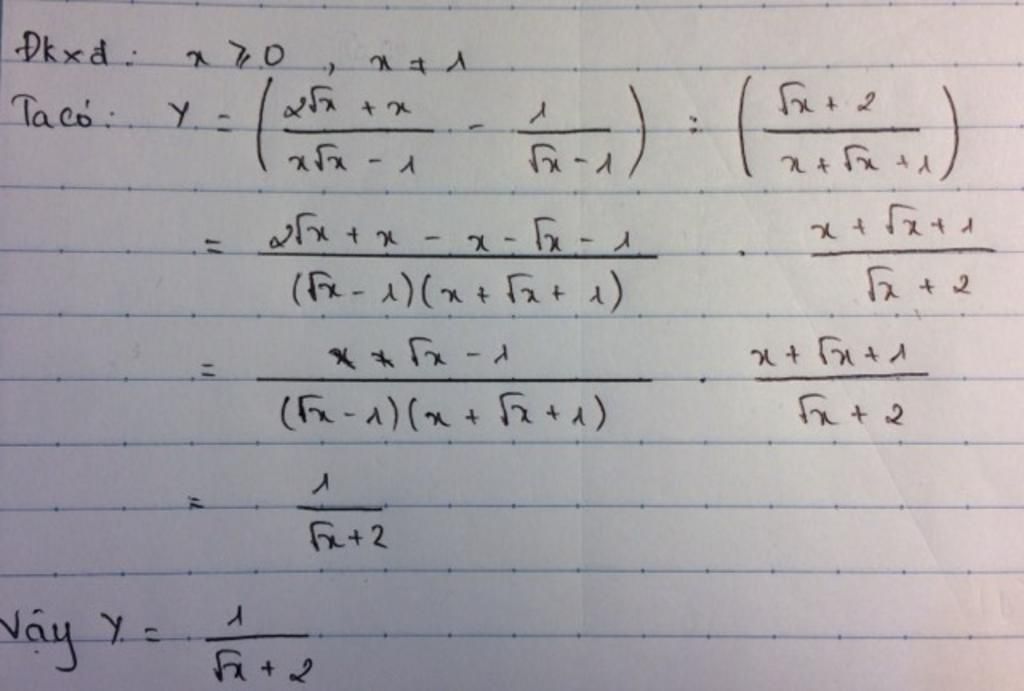 Đkxđ: x ⩾ 0, x ≠ 1
Ta có: Y = ( (2√x + x)/(x√x - 1) - 1/(√x - 1) ) : ( (√x + 2)/(x + √x + 1) )
= (2√x + x - x - √x - 1)/((√x - 1)(x + √x + 1)) . (x + √x + 1)/(√x + 2)
= (√x - 1)/((√x - 1)(x + √x + 1)) . (x + √x + 1)/(√x + 2)
= 1/(√x + 2)
Vậy Y = 1/(√x + 2)